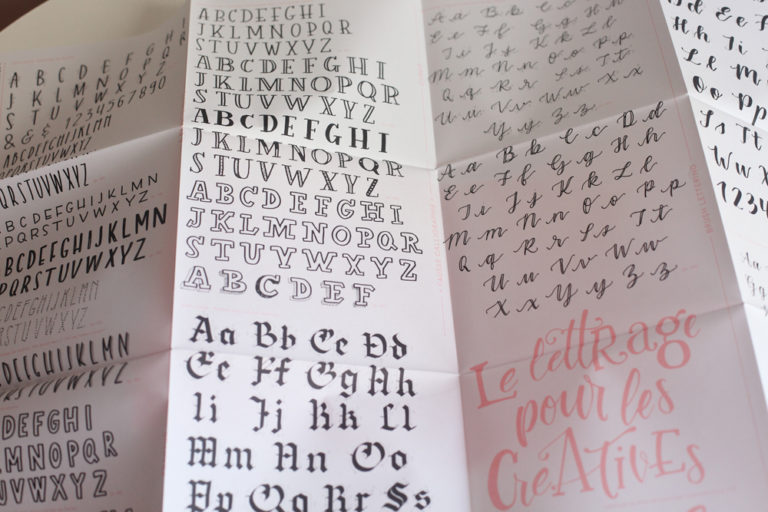 A B C D E F G H I
J K L M N O P Q R
S T U V W X Y Z
& & 1 2 3 4 5 6 7 8 9 0
ABCDEFGHIJKLMN
QRSTUVWXYZ
ABCDEFGHIJKLMN
OPQRSTUVWXYZ
ABCDEFGHIJKLMN
OPQRSTUVWXYZ
ABCDEFGHIJKLMN
OPQRSTUVWXYZ
DEFGHIJKLMN
RSTUVWXYZ
DEFGHI
MNOPQR
UVWXYZ
ABCDEFGHI
JKLMNOPQR
STUVWXYZ
ABCDEFGHI
JKLMNOPQR
STUVWXYZ
ABCDEFGHI
JKLMNOPQR
STUVWXYZ
ABCDEFGHI
JKLMNOPQR
STUVWXYZ
ABCDEF
Aa Bb Cc Dd
Ee Ff Gg Hh
Ii Jj Kk Ll
Mm Nn Oo
Pp Qq Rr Ss
Aa Bb Cc Dd
Ee Ff Gg Hh
Ii Jj Kk Ll
Mm Nn Oo Pp
Qq Rr Ss Tt
Uu Vv Ww Xx
Yy Zz
Aa Bb Cc Dd
Ee Ff Gg Hh
Ii Jj Kk Ll
Mm Nn Oo Pp
Qq Rr Ss Tt
Uu Vv Ww
Xx Yy Zz
BRUSH LETTERING
Le lettRage
pour les
CreAtivEs
Dd Ee Ff
Hh Ii
Ll M
Oo Pp
Ss Tt
Ww X
1234
Aa
Gg